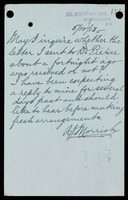 5/10/13.
May I inquire whether the
letter I sent to Dr Pierce
about a fortnight ago
was received or not?
I have been expecting
a reply to mine for several
days past and should
like to hear before making
fresh arrangements